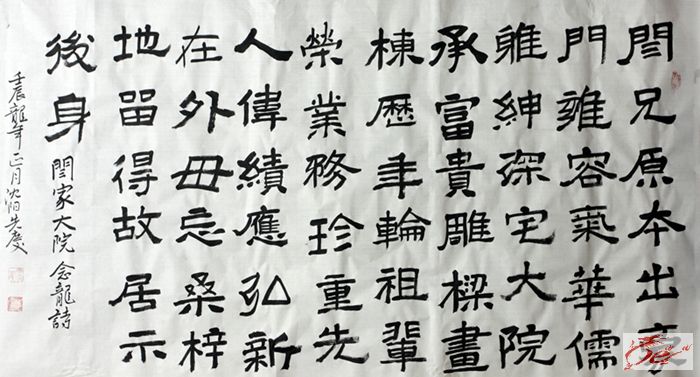 閆兄原本出
門雍容氣華儒
雅紳深宅大院
承富貴雕樑畫
棟歷年輪祖輩
榮業務珍重先
人偉績應弘新
在外毋忘桑梓
地留得故居示
後身 閆家大院 念龍詩
壬辰龍年正月沈阳